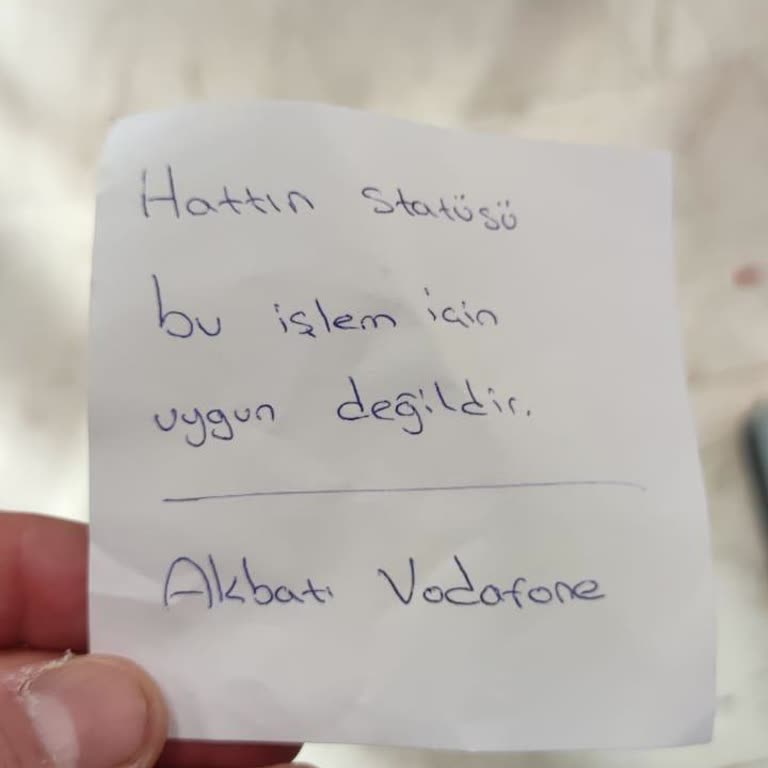 Hattın statüsü
bu işlem için
uygun değildir.
Akbatı Vodafone